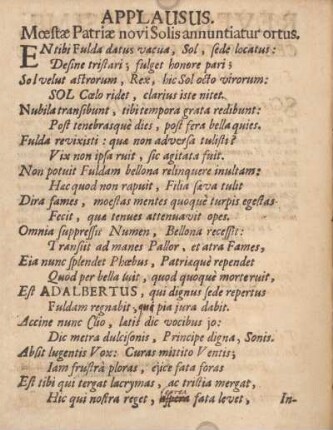 APPLAUSUS.
Mœstæ Patriæ novi Solis annuntiatur ortus.
EN tibi Fulda datus vacua, Sol, sede locatus:
Desine tristari; fulget honore pari;
Sol velut astrorum, Rex, hic Sol octo virorum:
SOL Cælo ridet, clarius iste nitet.
Nubila transibunt, tibi tempora grata redibunt:
Post tenebrasque dies, post fera bella quies.
Fulda revixisti: qua non adversa tulisti?
Vix non ipsa ruit, sic agitata fuit.
Non potuit Fuldam bellona relinquere inultam:
Hac quod non rapuit, Filia sæva tulit
Dira fames, moestas mentes quoque turpis egestas
Fecit, qua tenues attenuavit opes.
Omnia suppressit Numen, Bellona recessit:
Transiit ad manes Pallor, et atra Fames,
Eia nunc splendet Phœbus, Patriæque rependet
Quod per bella luit, quod quoque morte ruit,
Est ADALBERTUS, qui dignus sede repertus
Fuldam regnabit, que pia jura dabit.
Accine nunc Clio, latis dic vocibus jo:
Dic metra dulcisonis, Principe digna, Sonis.
Absit lugentis Vox: Curas mittito Ventis;
Iam frustrà ploras, ejice fata foras
Est tibi qui tergat lacrymas, ac tristia mergat,
Hic qui nostra reget, fata levet,
In-